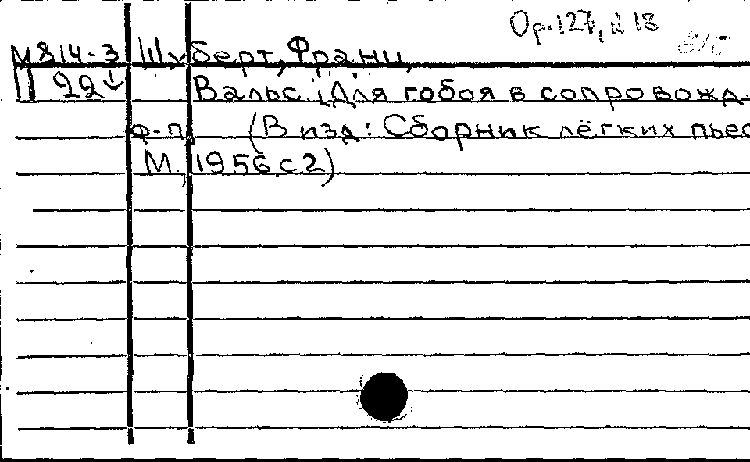 Op.127, № 18
М814-3 Шуберт, Франц
П 22 Вальс. (Для гобоя в сопровожд.
ф-п) (В изд: Сборник лёгких пьес
М., 1956 с 2)